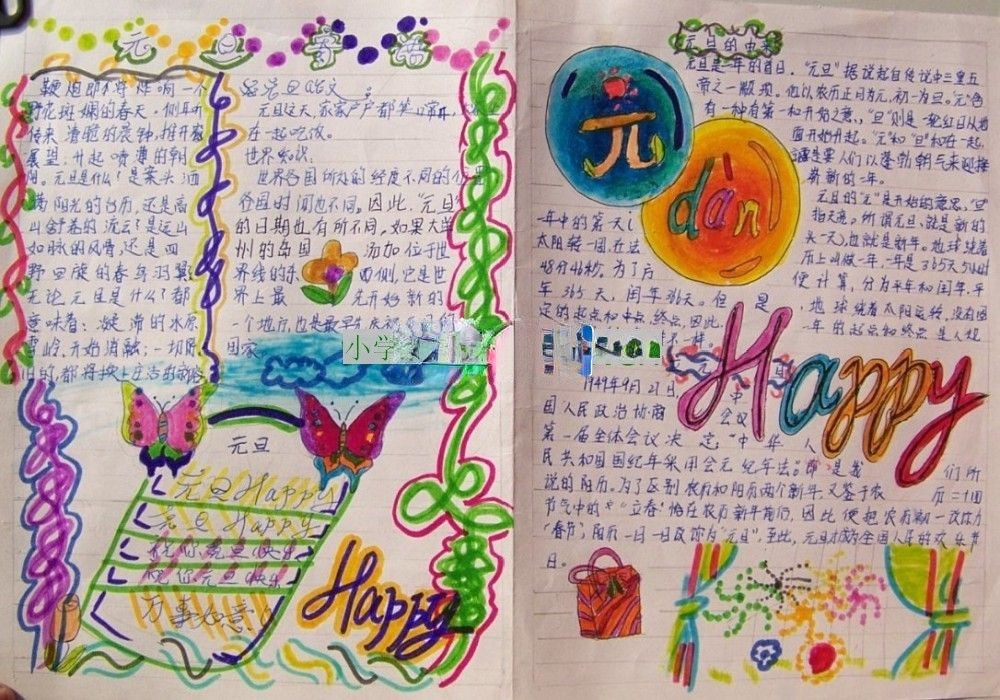 元旦寄语
鞭炮即将炸响一个
野花斑斓的春天。侧耳
传来清脆的晨钟，推开
展望，升起喷薄的朝
阳。元旦是什么？是案头洒
满阳光的台历，还是高
山舒卷的流云？是远山
如脉的风骨，还是四
野回旋的春鸟羽翼
无论元旦是什么？都
意味着：凝滞的冰原
雪岭，开始消融；一切陈
旧的，都将换上
元旦这天，家家户户都
在一起吃饭。
世界知识：
世界各国所处的经度不同的
各国的时间也不同。因此，“元旦”
的日期也有所不同。如果大洋
州的岛国汤加位于世
界线的东西侧，它是世
界上最先开始新的
一个地方，也是最早
国家
小学
元旦
元旦Happy
元旦Happy
祝你元旦快乐
祝你元旦快乐
万事如意
Happy
元旦的由来
元旦是一年的首日，“元旦”据说起自传说中三皇五
帝之一颛顼。他以农历正月为元，初一为旦。“元”
有一种有第一和开始之意，“旦”则是一轮红日从地
面开始升起。“元”和“旦”和在一起，
是要人们以蓬勃朝气来迎接
崭新的一年。
元 dàn
元旦的“元”是开始的意思，“旦”
指天亮。所谓元旦，就是新的
年中的第一天，也就是新年。地球绕着
太阳转一圈，在
历上叫做一年，一年是365天5小时
48分46秒，为了方便计算，分为平年和闰年，平
年365天，闰年366天。但是，地球绕着太阳运转，没有固
定的起点和中点终点，因此，一年的起点和终点是人规
不一样。
Happy
1949年9月21日，中
国人民政治协商会议
第一届全体会议决定：“中华人
民共和国国纪年采用公元纪年法。即是我们所
说的阳历。为了区别农历和阳历两个新年，又鉴于农历二十四
节气中的“立春”恰在农历新年前后，因此便把农历初一改称为
“春节”，阳历一月一日改称为“元旦”，至此，元旦才成为全国人民的欢乐节
日。